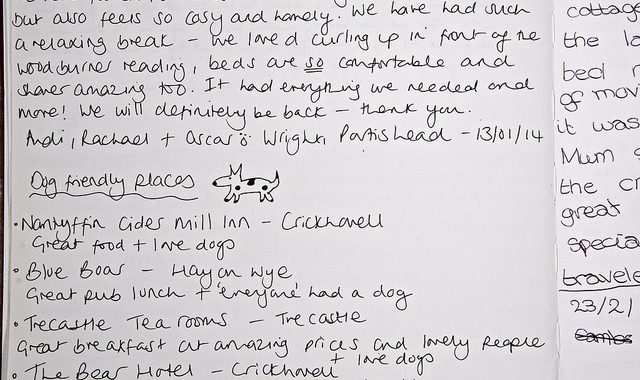 but also feels so cosy and homely. We have had such
a relaxing break – we loved curling up in front of the
woodburner reading, beds are so comfortable and
shower amazing too. It had everything we needed and
more! We will definitely be back – thank you.
Andi, Rachael + Oscar Wright, Portishead – 13/01/14
Dog friendly places
• Nantyffin Cider Mill Inn – Crickhowell
Great food + love dogs
• Blue Boar – Hay on Wye
Great pub lunch + 'everyone' had a dog
• Trecastle Tea rooms – Trecastle
Great breakfast at amazing prices and lovely people
+ love dogs
• The Bear Hotel – Crickhowell
cottag
the la
bed
of movi
it was
Mum
the cr
great
specia
travele
23/2/